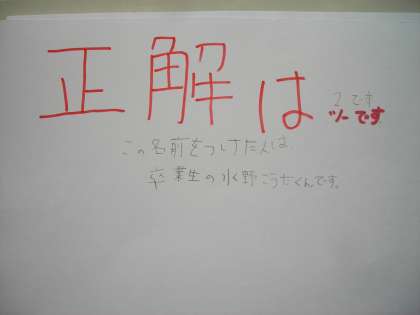 正解は
2です
ツーです
この名前をつけた人は
卒業生の水野こうせくんです。